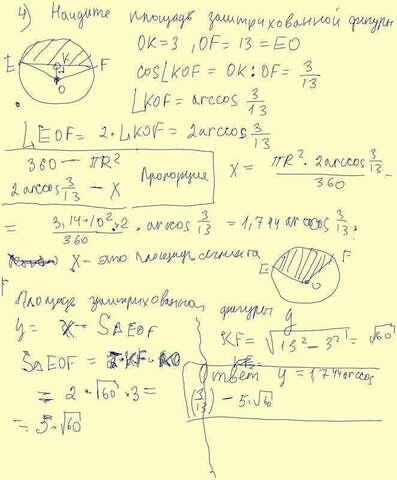 4) Найдите площадь заштрихованной фигуры
E K F
O
OK=3, OF=13=EO
cos∠KOF = OK:OF = 3/13
∠KOF = arccos 3/13
∠EOF = 2·∠KOF = 2arccos 3/13
360 — πR²
2arccos 3/13 — X
Пропорция
X = πR²·2arccos 3/13 / 360 =
= 3,14·10²·2 / 360 · arccos 3/13 = 1,744 arccos 3/13 =
X - это площадь сегмента
E F
O
Площадь заштрихованной фигуры y
y = X - S△EOF
KF = √13²-3² = √60
S△EOF = KF · KO
= 2·√60·3 =
= 5·√60
Ответ y = 1,744 arccos
(3/13) - 5·√60